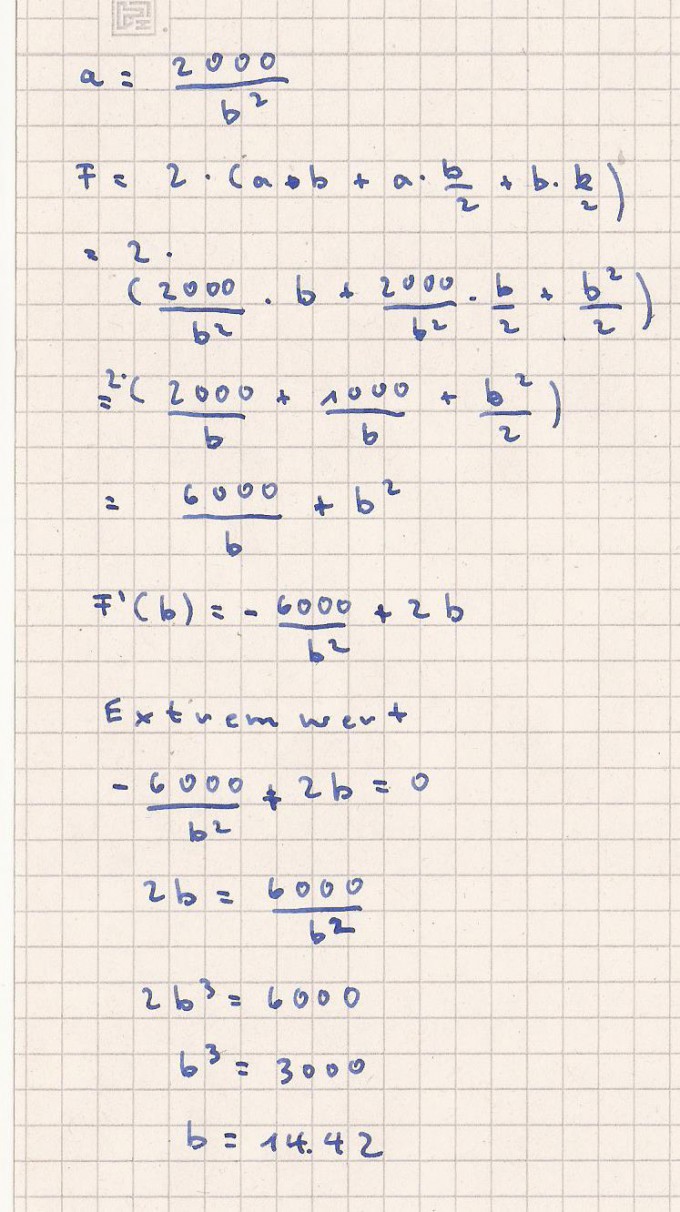 a = 2000/b²
F = 2 · (a · b + a · b/2 + b · b/2)
= 2 ·
(2000/b² · b + 2000/b² · b/2 + b²/2)
= 2 · (2000/b + 1000/b + b²/2)
= 6000/b + b²
F'(b) = - 6000/b² + 2b
Extremwert
- 6000/b² + 2b = 0
2b = 6000/b²
2b³ = 6000
b³ = 3000
b = 14.42